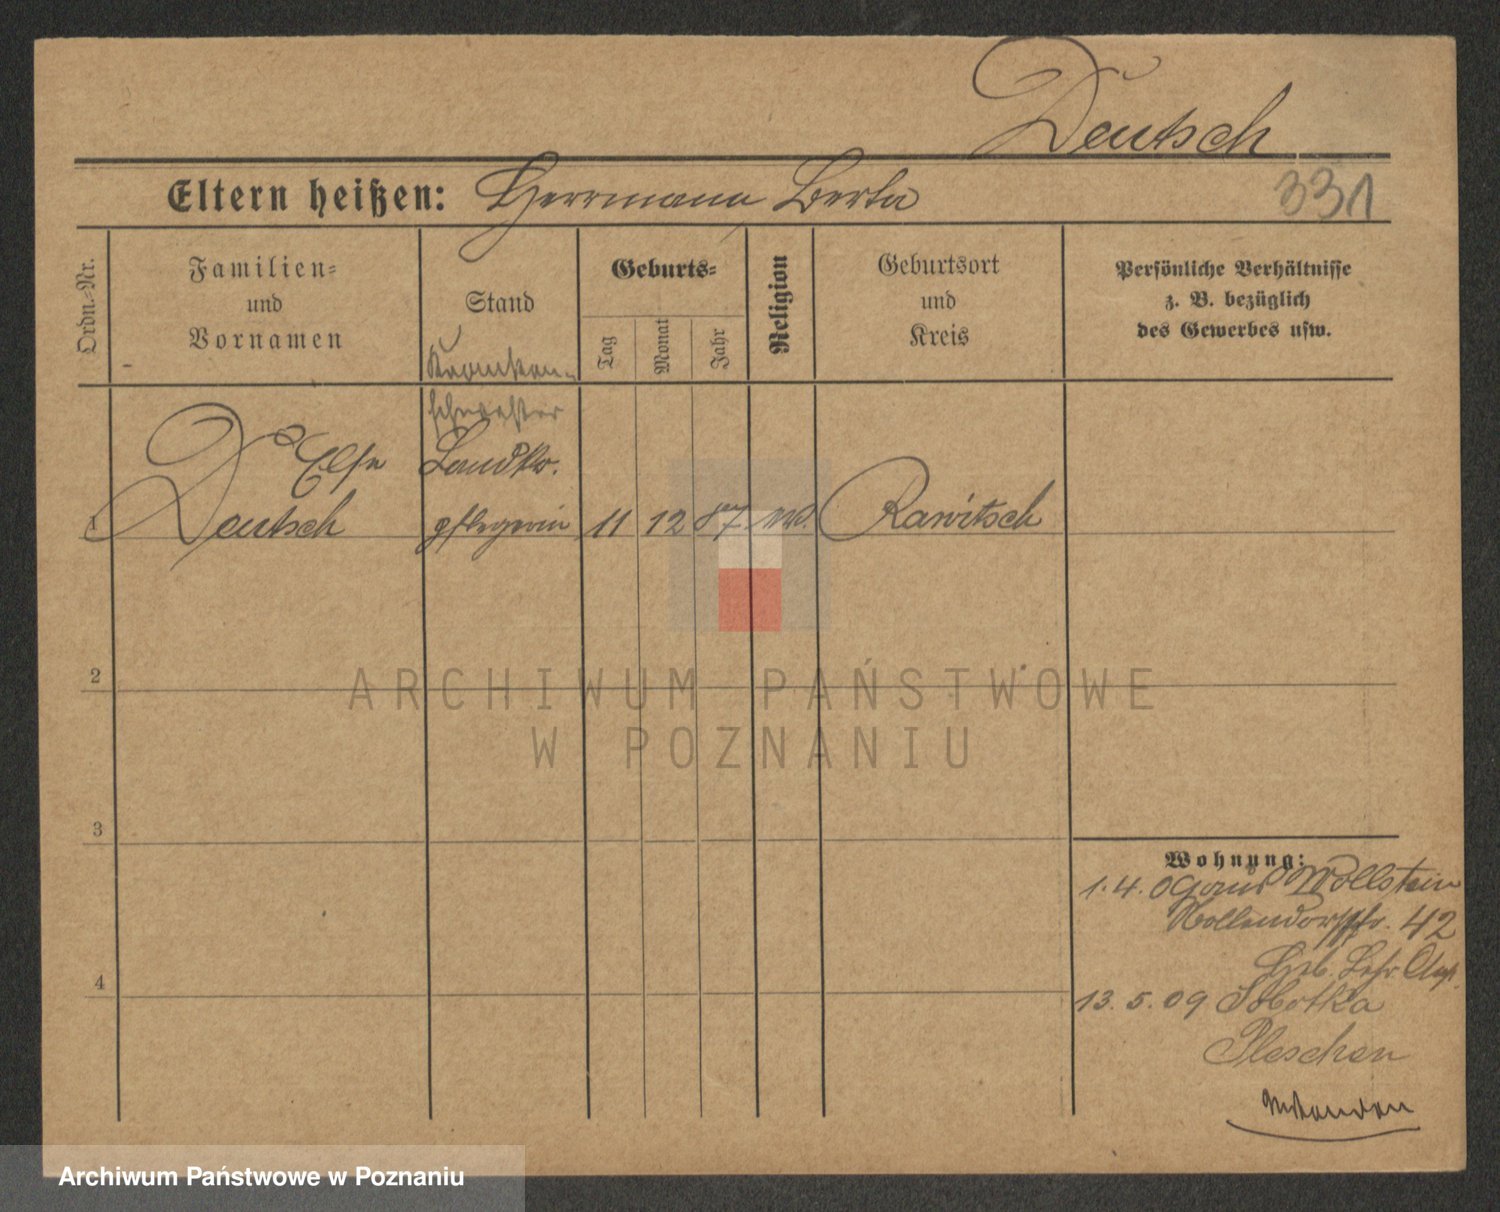 Deutsch
Eltern heißen: Herrmann Berta
331
Ordn.-Nr.
Familien-
und
Vornamen
Stand
Geburts-
Tag
Monat
Jahr
Religion
Geburtsort
und
Kreis
Persönliche Verhältnisse
z. B. bezüglich
des Gewerbes usw.
Kranken-
schwester
Else Landkr.
1 Deutsch pflegerin 11 12 87 Rawitsch
2
3
4
ARCHIWUM PAŃSTWOWE
W POZNANIU
Wohnung:
1.4.09 aus Wollstein
Nollendorfstr. 42
13.5.09 Sobotka
Pleschen
Archiwum Państwowe w Poznaniu